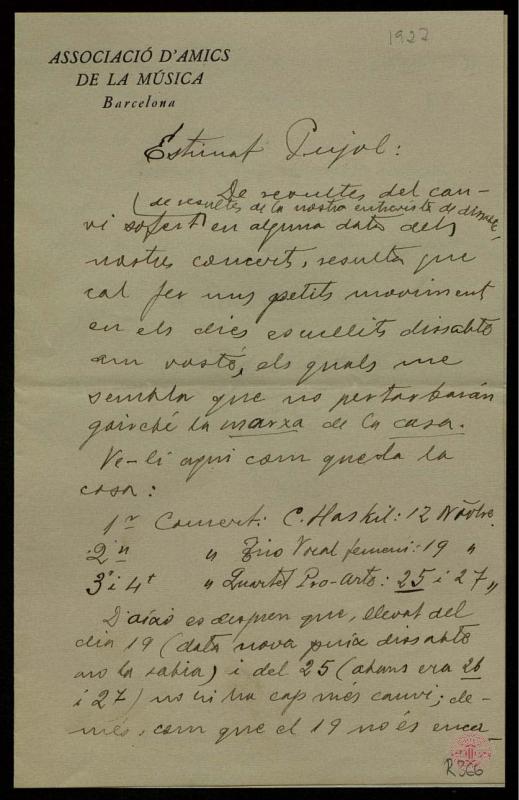 1927
ASSOCIACIÓ D'AMICS
DE LA MÚSICA
Barcelona
Estimat Pujol:
De resultes del can-
(de resultes de la nostra entrevista de dissabte)
vi sofert en alguna data dels
nostres concerts, resulta que
cal fer uns petits moviment
en els dies escullits dissabte
am vostè, els quals me
sembla que no pertorbarán
gairebé la marxa de la casa.
Ve-li aquí com queda la
cosa:
1r Concert: C. Haskil: 12 Novbre
2n " Trio Vocal femení: 19 "
3r i 4t " Quartet Pro-Arte: 25 i 27 "
D'això es despren que, llevat del
dia 19 (data nova puix dissabte
no la sabia) i del 25 (abans era 26
i 27) no hi ha cap més canvi; de-
més, com que el 19 no és enca-
R 366